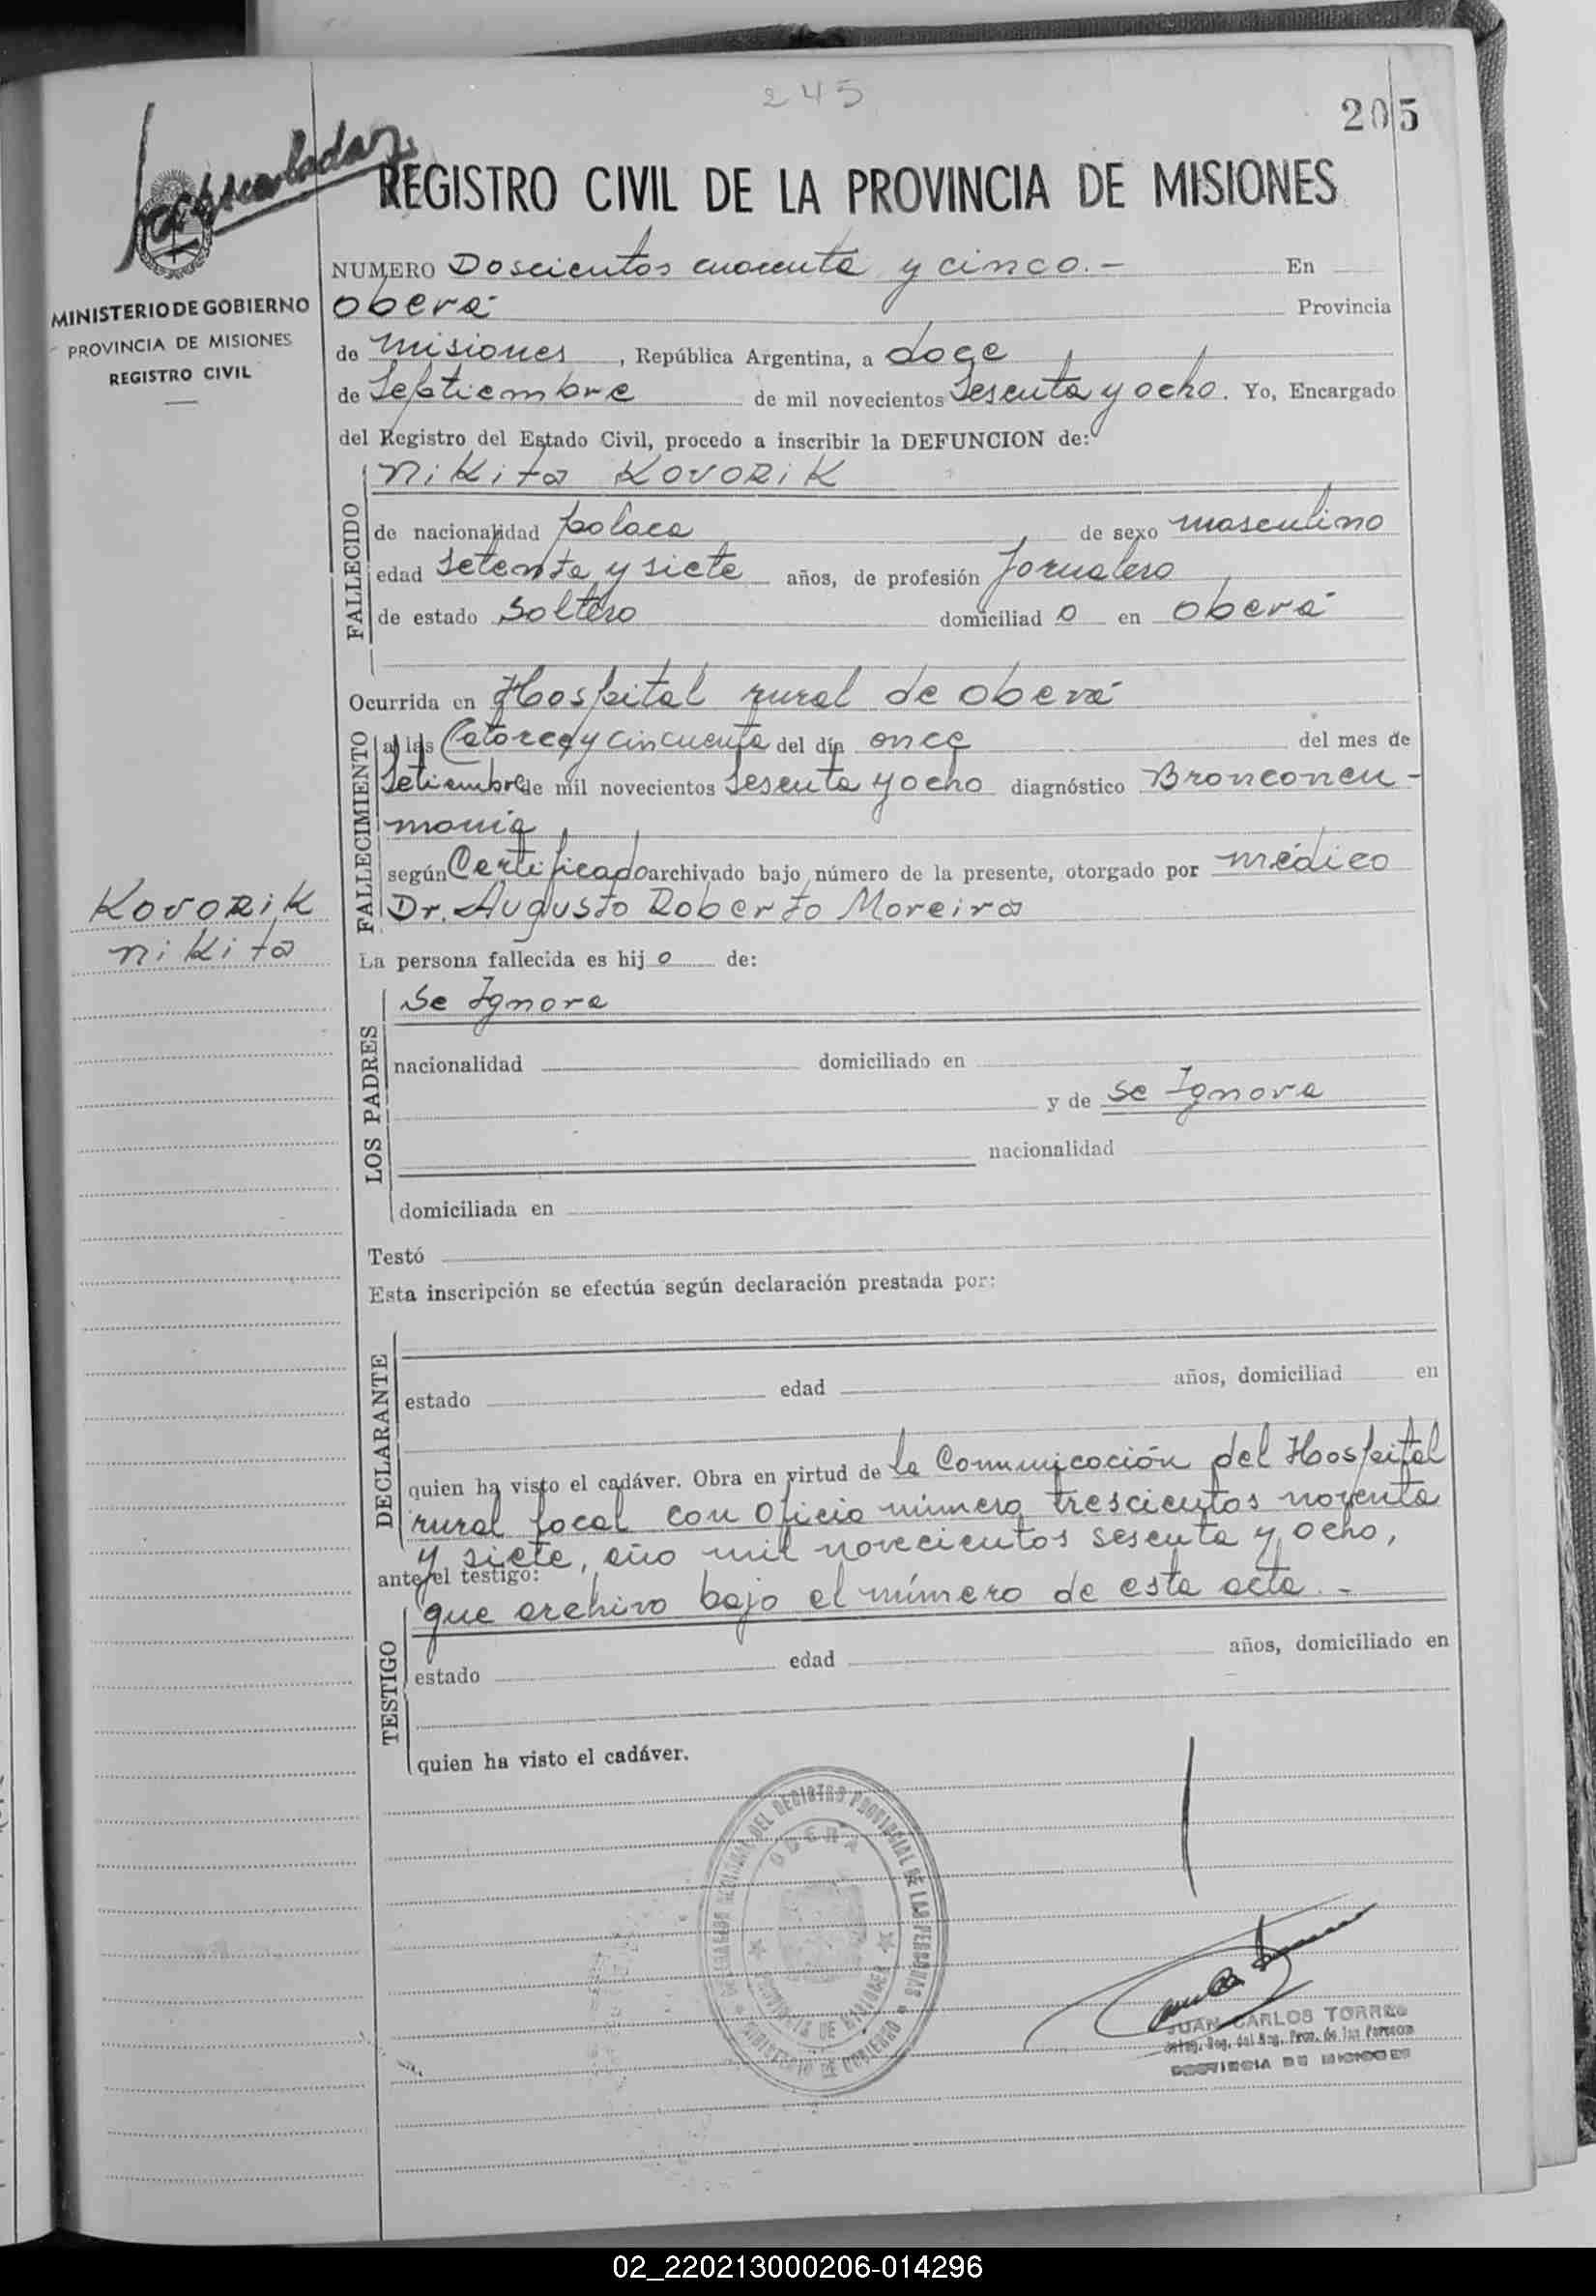 245
205
REGISTRO CIVIL DE LA PROVINCIA DE MISIONES
MINISTERIO DE GOBIERNO
PROVINCIA DE MISIONES
REGISTRO CIVIL
NUMERO Doscientos cuarenta y cinco.- En
Oberá Provincia
de Misiones, República Argentina, a doce
de Septiembre de mil novecientos Sesenta y ocho. Yo, Encargado
del Registro del Estado Civil, procedo a inscribir la DEFUNCION de:
Nikita KOVORIK
FALLECIDO
de nacionalidad polaca de sexo masculino
edad Setenta y siete años, de profesión Jornalero
de estado Soltero domiciliad o en Oberá
Ocurrida en Hospital rural de Oberá
FALLECIMIENTO
a las Catorce y cincuenta del día once del mes de
Setiembre de mil novecientos Sesenta y ocho diagnóstico Bronconeu-
monia
según Certificado archivado bajo número de la presente, otorgado por médico
Dr. Augusto Roberto Moreira
KOVORIK
Nikita
La persona fallecida es hij o de:
LOS PADRES
Se Ignora
nacionalidad domiciliado en
y de Se Ignora
nacionalidad
domiciliada en
Testó
Esta inscripción se efectúa según declaración prestada por:
DECLARANTE
estado edad años, domiciliad en
quien ha visto el cadáver. Obra en virtud de la Comunicación del Hospital
rural local con Oficio número trescientos noventa
y siete, año mil novecientos sesenta y ocho,
ante el testigo:
que archivo bajo el número de esta acta.-
TESTIGO
estado edad años, domiciliado en
quien ha visto el cadáver.
DEL REGISTRO PROVINCIAL DE LAS PERSONAS
OBERA
PROVINCIA DE MISIONES
MINISTERIO DE GOBIERNO
JUAN CARLOS TORRES
Deleg. Reg. del Reg. Prov. de las Personas
PROVINCIA DE MISIONES
02_220213000206-014296